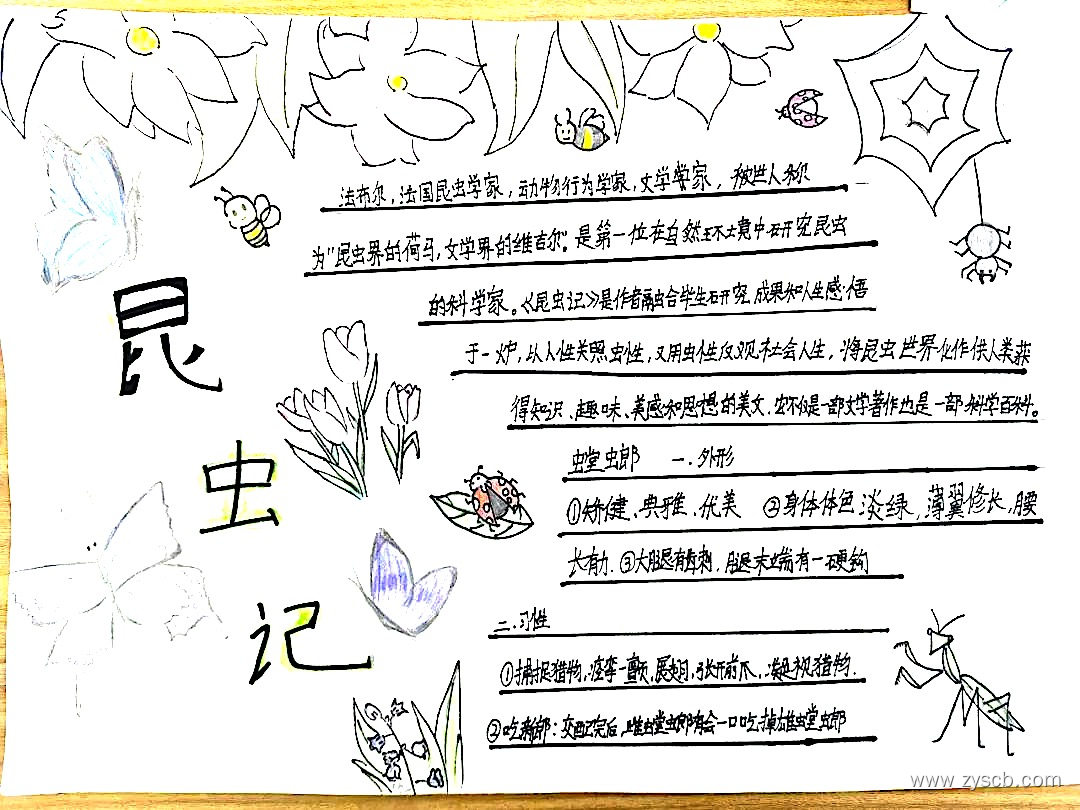 昆
虫
记
法布尔，法国昆虫学家，动物行为学家，文学家，被世人称
为"昆虫界的荷马，文学界的维吉尔"。是第一位在自然环境中研究昆虫
的科学家。《昆虫记》是作者融合毕生研究成果和人生感悟
于一炉，以人性关照虫性，又用虫性反观社会人生，将昆虫世界化作供人类获
得知识、趣味、美感和思想的美文。它不仅是一部文学著作也是一部科学百科。
螳螂 一.外形
①矫健、典雅、优美 ②身体体色淡绿，薄翼修长，腰
长有力.③大腿有齿刺，腿末端有一硬钩
二.习性
①捕捉猎物，痉挛一颤，展翅，张开前爪，凝视猎物.
②吃新郎：交配完后，雌螳螂会一口吃掉雄螳螂
www.zyscb.com